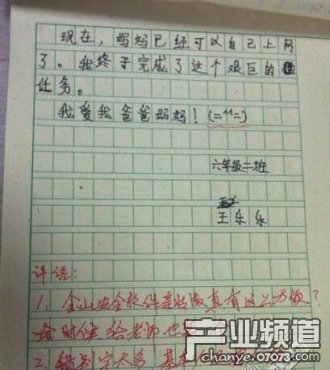 现在，妈妈已经可以自己上网
了。我终于完成了这个艰巨的
任务。
我爱我爸爸妈妈！(=^^=)
六年级二班
王乐乐
评语：
1、金山安全软件套装版真有这么方便？
给老师也
2、错别字太多，基
产业频道
chanye.07073.com